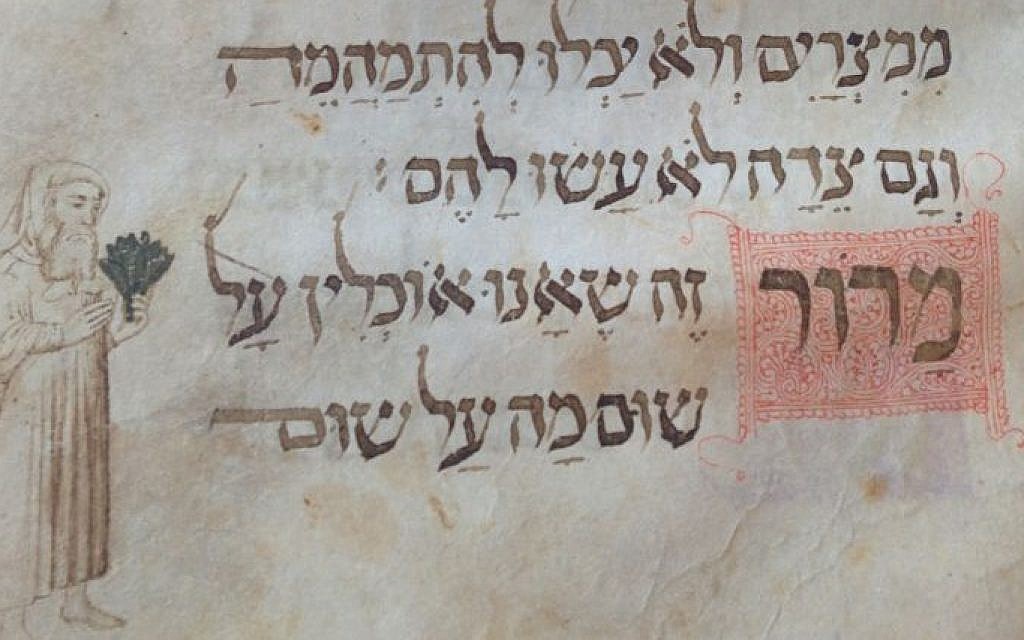 מִמִּצְרַיִם וְלֹא יָכְלוּ לְהִתְמַהְמֵהַּ
וְגַם צֵדָה לֹא עָשׂוּ לָהֶם :
מָרוֹר זֶה שֶׁאָנוּ אוֹכְלִין עַל
שׁוּם מַה עַל שׁוּם